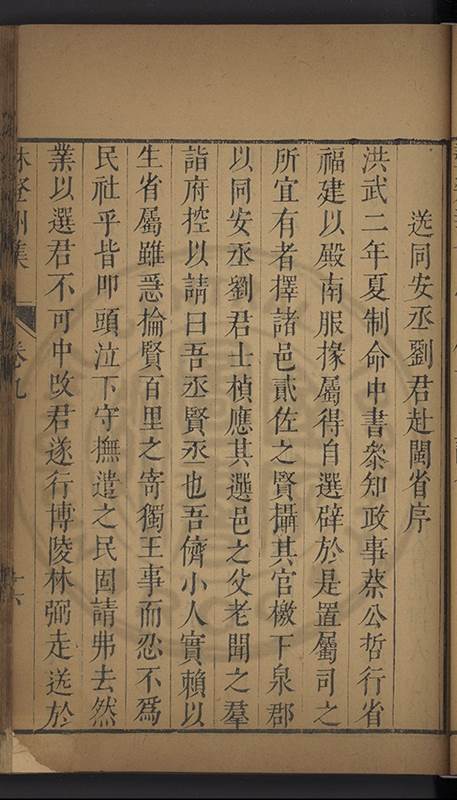 送同安丞劉君赴閩省序
洪武二年夏制命中書叅知政事蔡公哲行省
福建以殿南服掾屬得自選辟於是置屬司之
所宜有者擇諸邑貳佐之賢攝其官檄下泉郡
以同安丞劉君士楨應其選邑之父老聞之羣
詣府控以請曰吾丞賢丞也吾儕小人實賴以
生省屬雖惎掄賢百里之寄獨王事而忍不爲
民社乎皆叩頭泣下守撫遣之民固請弗去然
業以選君不可中改君遂行博陵林弼走送於
林登州集 卷九 十六